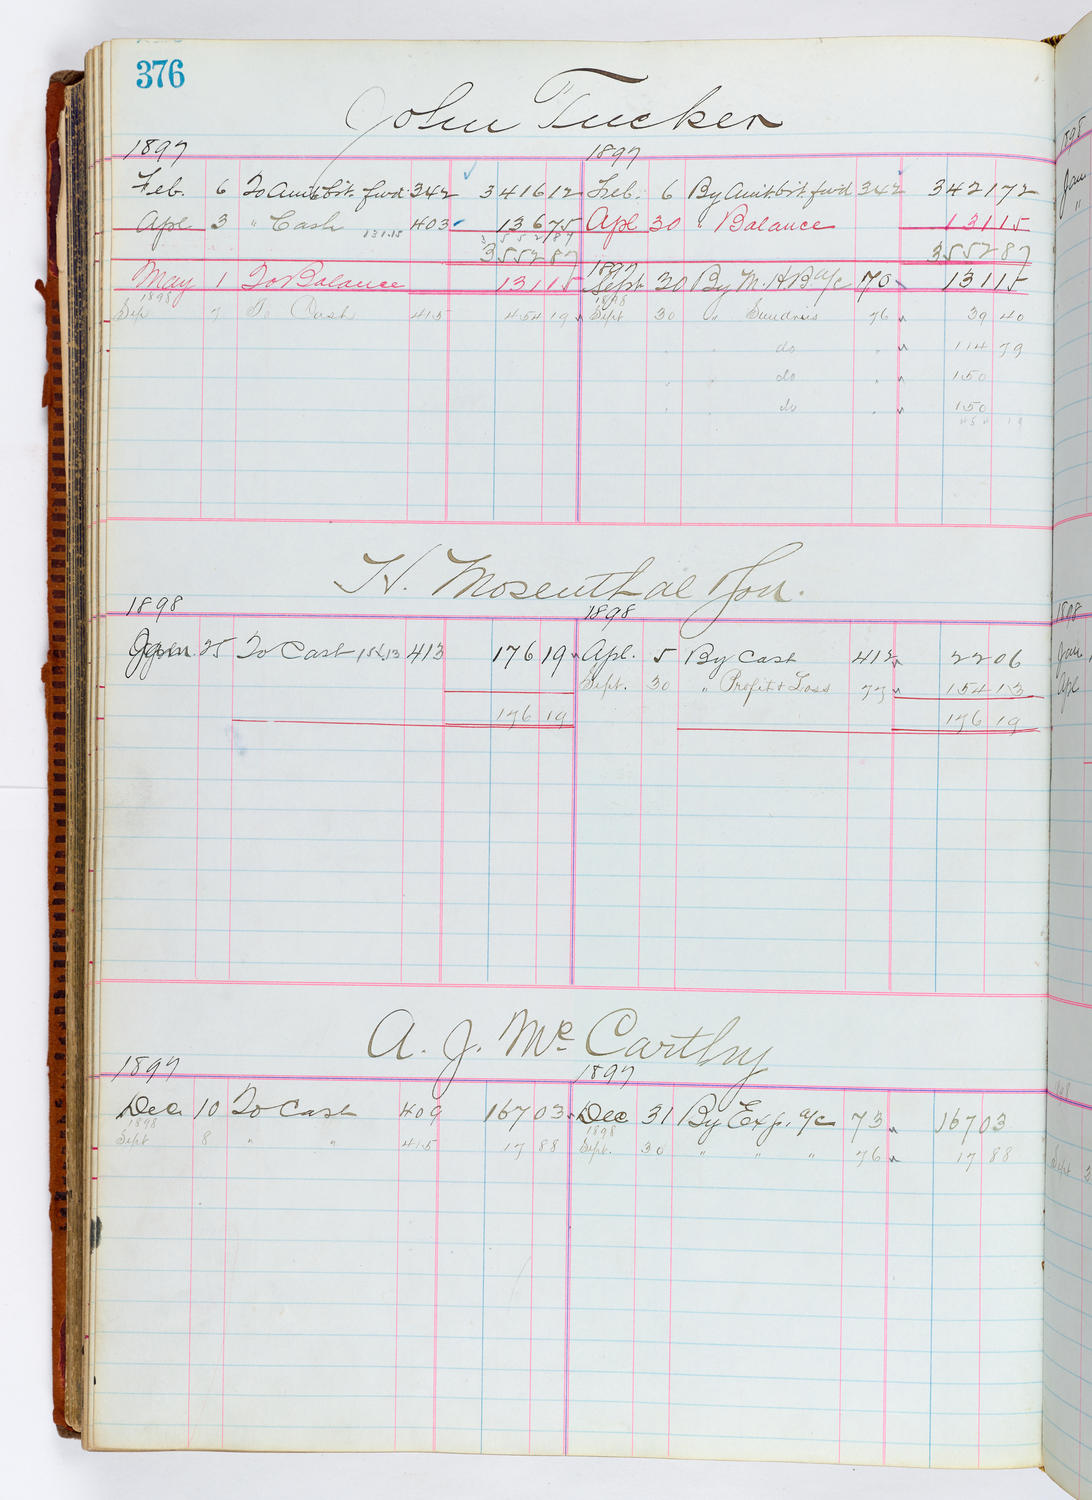 376
John Tucker
1897 1897
Feb. 6 To Amt bt. fwd. 342 3416 12 Feb. 6 By Amt bt. fwd 342 3421 72
Apl. 3 " Cash 131.15 403 136 75 Apl 30 " Balance 131 15
3552 87
3552 87 3552 87
May 1 To Balance 131 15 1897 Sept 30 By M. & B a/c 70 131 15
1898 1898
Sep 7 To Cash 415 454 19 Sept 30 " Sundries 76 39 40
" " do " 114 79
" " do " 150
" " do " 150
454 19
H. Mosenthal & Son.
1898 1898
Jan. 25 To Cash 154.13 413 176 19 Apl. 5 By Cash 412 22 06
Sept. 30 " Profit & Loss 77 154 13
176 19 176 19
A. J. McCarthy
1897 1897
Dec. 10 To Cash 409 167 03 Dec 31 By Exp. a/c 73 167 03
1898 1898
Sept 8 " " 415 17 88 Sept. 30 " " " 76 17 88
1898
Jan
"
1898
Jan
Apl
Sept 3